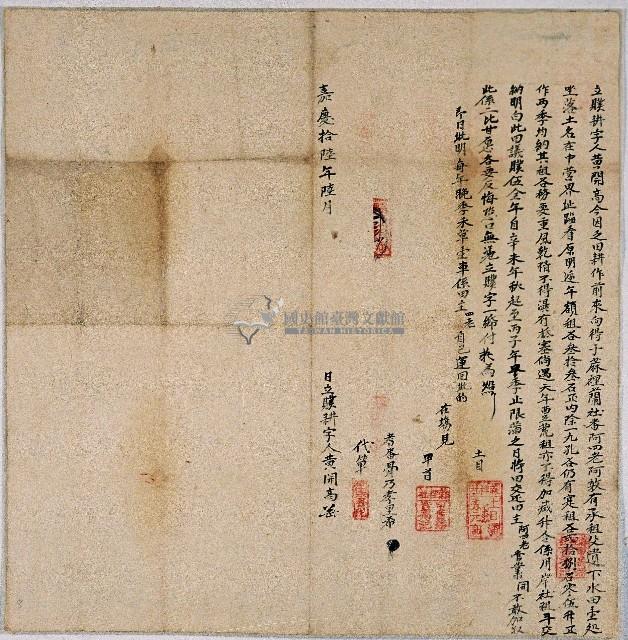 立贌耕字人黃開高今因乏田耕作前來向得于蔴裡蘭社番阿四老阿敦有承祖父遺下水田壹処
坐落土名在中營界址踏看原明逐年額租谷叁拾叁石正內除一九孔谷仍有寔租谷弍拾捌石零伍升正
作両季均納其租谷務要重風乾積不得濕冇抵塞倘遇天年豊荒租亦不得加減升合係用岸社租斗交
納明白此田議贌伍全年自辛未年秋起至丙子年早季止限滿之日將田交还田主阿四老管業開不敢加奴
此係二比甘愿各無反悔恐口無憑立贌字一紙付执為照
即日批明每年晚季禾草壹車係田主四老自己運回批的
在塲見
土目
甲首
耆番
代筆
嘉慶拾陸年陸月
日立贌耕字人黃開高
國史館臺灣文獻館
TAIWAN HISTORICA